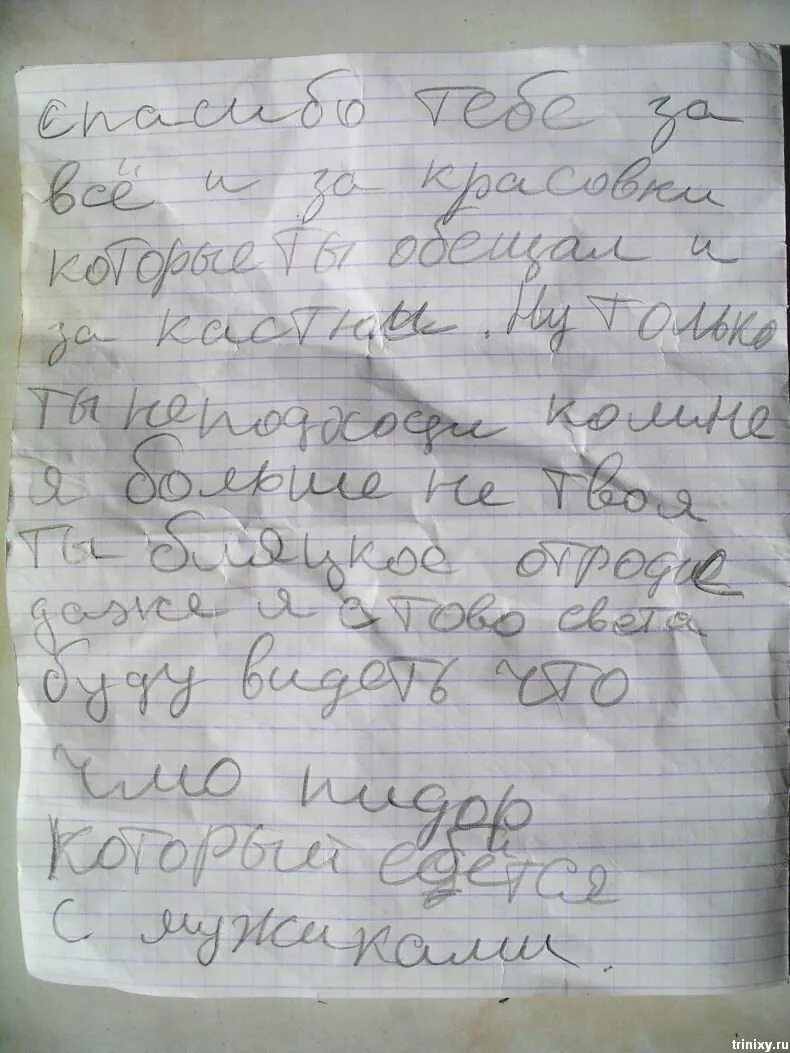 спасибо тебе за
всё и за красовки
которые ты обещал и
за кастюм. Ну только
ты неподходи комне
я больше не твоя
ты бляцкое отродие
даже я с тово света
буду видеть что
Чмо пидор
который ебётся
с мужиками.
trinixy.ru